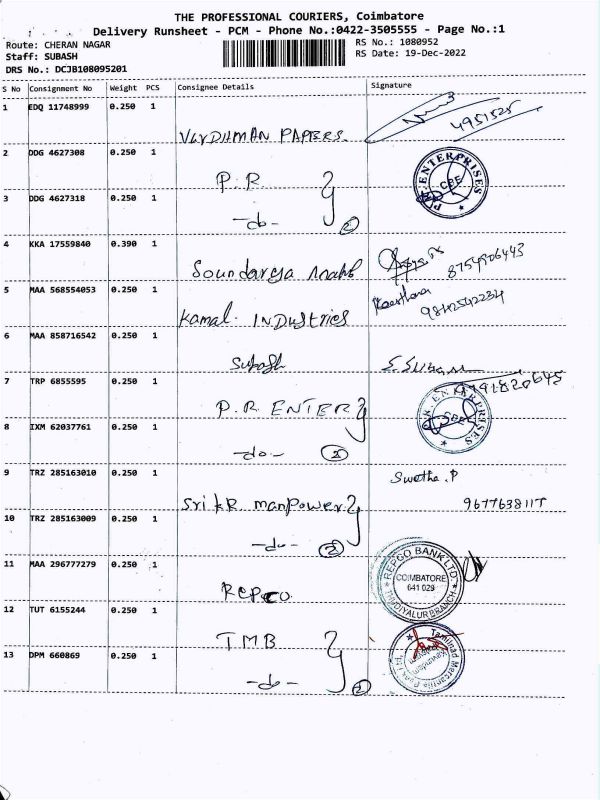 THE PROFESSIONAL COURIERS, Coimbatore
Delivery Runsheet - PCM - Phone No.:0422-3505555 - Page No.:1
Route: CHERAN NAGAR
Staff: SUBASH
DRS No.: DCJB108095201
RS No.: 1080952
RS Date: 19-Dec-2022
S No Consignment No Weight PCS Consignee Details Signature
1 EDQ 11748999 0.250 1
VARDHMAN PAPERS. 4951525
2 DDG 4627308 0.250 1
P.R P.R. ENTERPRISES CBE
3 DDG 4627318 0.250 1
-do- 2
4 KKA 17559840 0.390 1
Soundarya 8754906443
5 MAA 568554053 0.250 1
Kamal. INDUSTRIES 9842542234
6 MAA 858716542 0.250 1
Subash S. Subash
7 TRP 6855595 0.250 1
P.R. ENTER P.R. ENTERPRISES CBE
8 IXM 62037761 0.250 1
-do- 2
9 TRZ 285163010 0.250 1 Swetha.P
Sri KR manpower
10 TRZ 285163009 0.250 1
-do- 2
11 MAA 296777279 0.250 1
REPCO REPCO BANK LTD. COIMBATORE 641 029 THUDIYALUR BRANCH
12 TUT 6155244 0.250 1
TMB Tamilnad Mercantile Bank Ltd.
13 DPM 660869 0.250 1
-do- 2